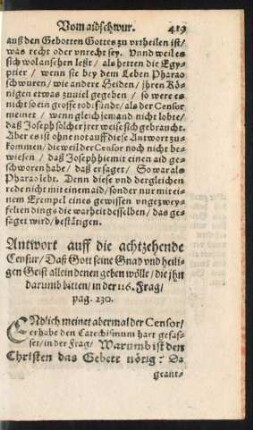 Vom aidschwur. 419
auß den Gebotten Gottes zu vrtheilen ist/
was recht oder vnrecht sey. Vnnd weil es
sich wol ansehen lest / als hetten die Egy-
ptier / wenn sie bey dem Leben Pharao
schwuren / wie andere Heiden / ihren Kö-
nigen etwas zuuiel gegeben / so were es
nicht so ein grosse todtsünde / als der Censor
meinet / wenn gleich jemand nicht lobte/
daß Joseph solcher jrer weise sich gebraucht.
Aber es ist ohne not auff diese Antwort zu-
kommen / die weil der Censor noch nicht be-
wiesen / daß Joseph hie mit einen aid ge-
schworen habe / daß er saget / So war als
Pharao lebt. Denn diese vnd dergleichen
rede nicht mit einem aid / sonder nur mit ei-
nem Exempel eines gewissen vngezwey-
felten dings die warheit desselben / das ge-
saget wird / bestätigen.
Antwort auff die achtzehende
Censur / Daß Gott seine Gnad vnd heili-
gen Geist allein denen geben wölle / die jhn
darumb bitten / in der 116. Frag/
pag. 230.
ENdlich meinet abermal der Censor/
er habe den Catechismum hart gefas-
set / in der Frag / Warumb ist den
Christen das Gebett nötig? Da
geant-